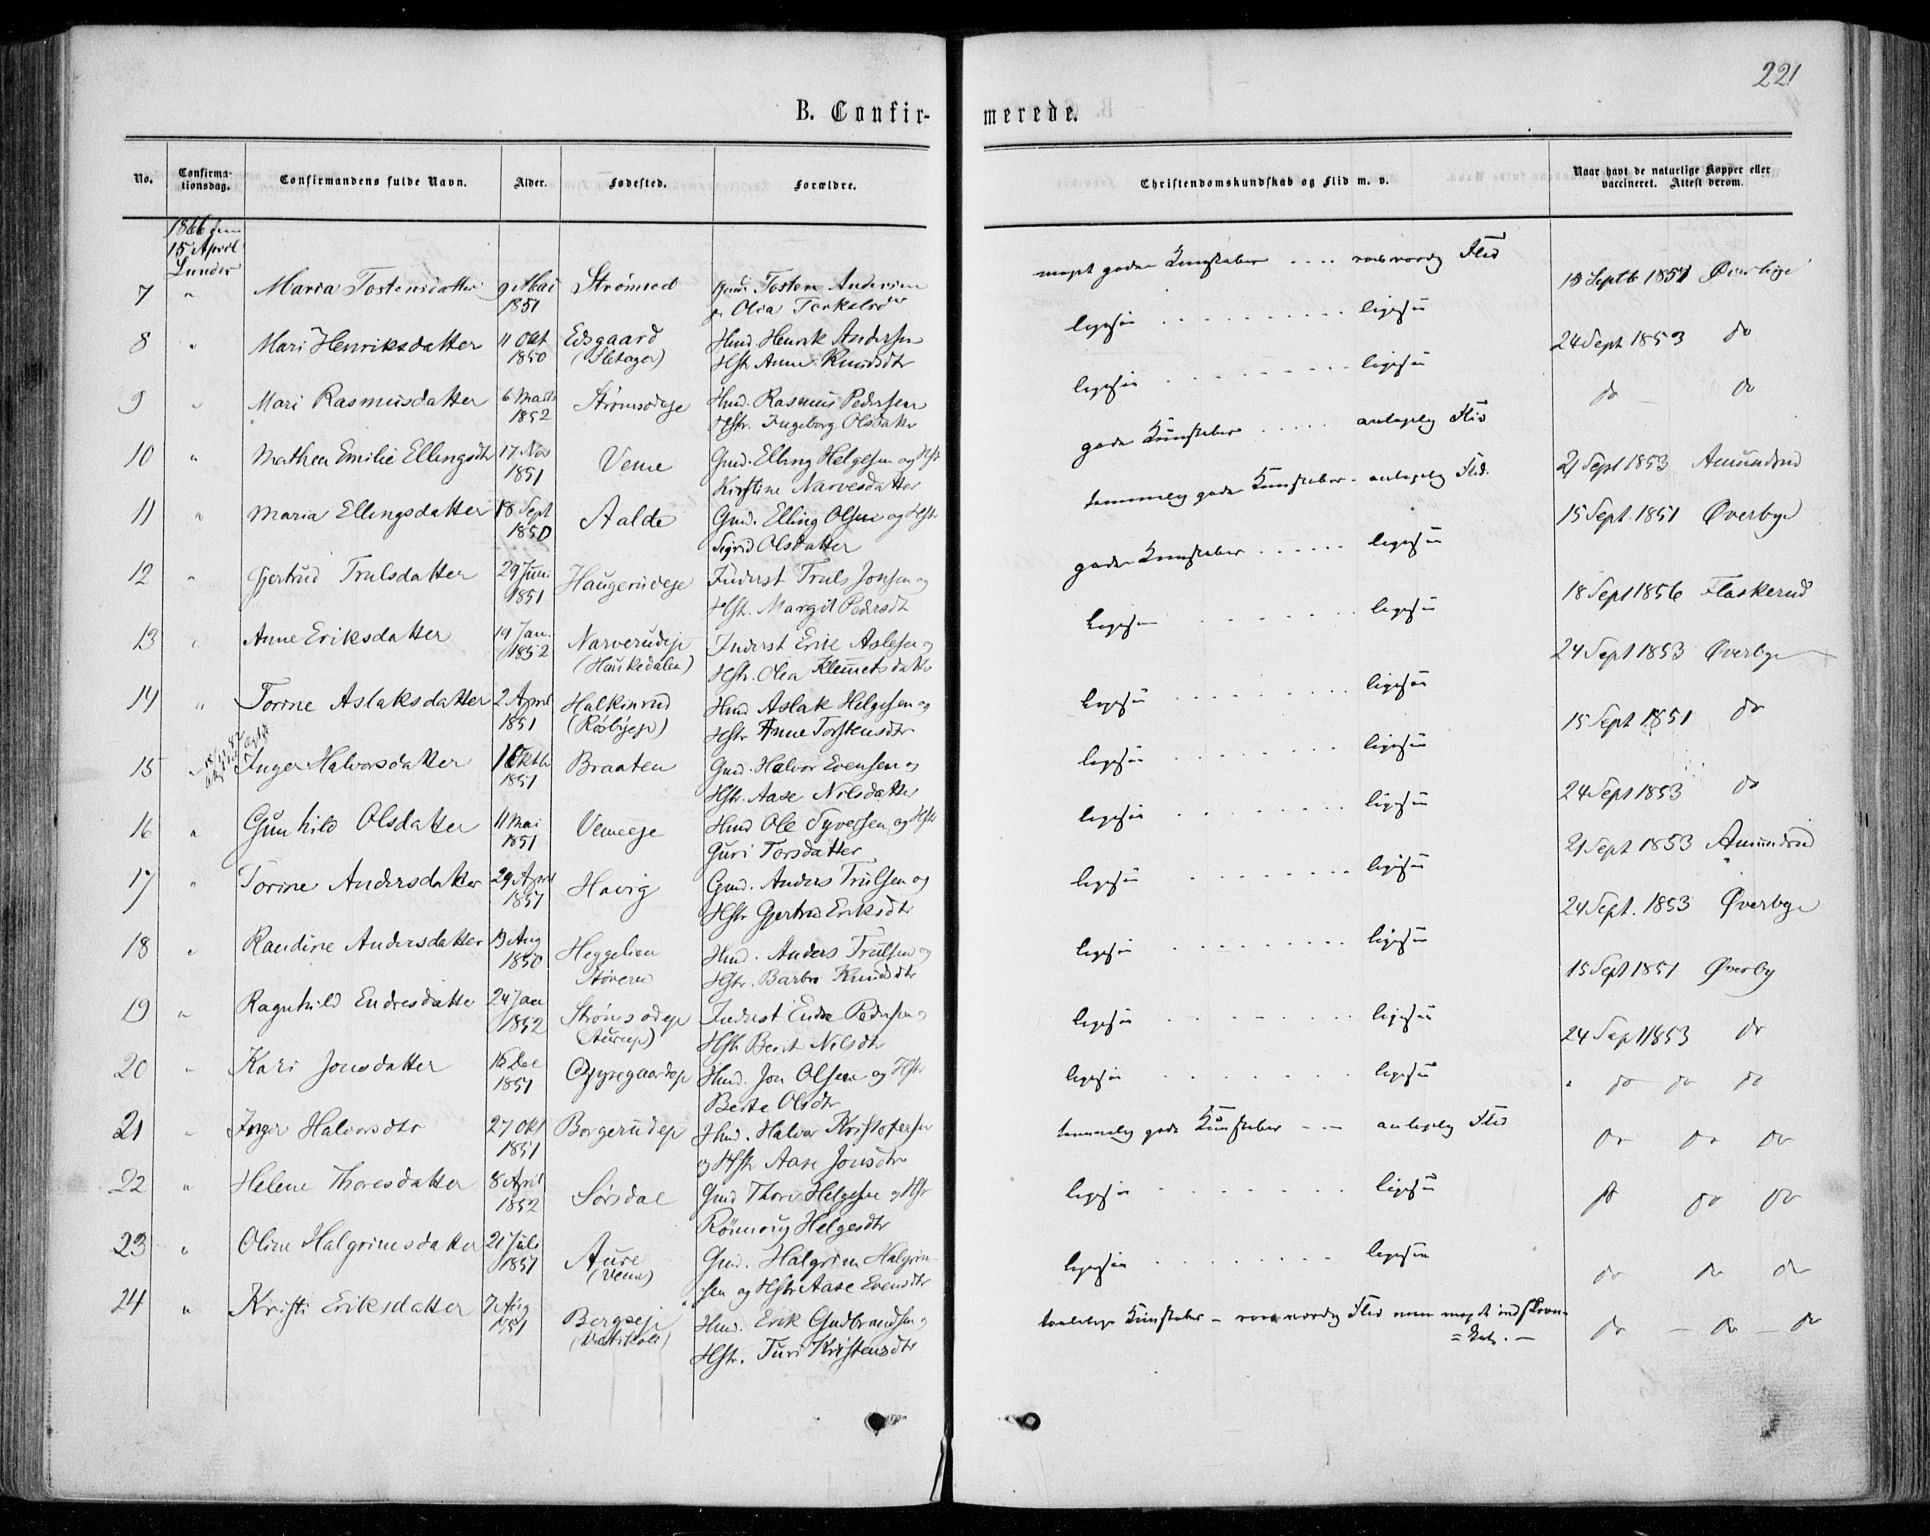 221
B. Confir-
merede.
No. Confirma-tionsdag. Confirmandens fulde Navn. Alder. Fødested. Forældre. Christendomskundskab og Flid m. v. Naar havt de naturlige Kopper eller vaccineret. Attest derom.
1866
15 April
Lunder
7 " Maria Tostensdatter 9 Mai 1851 Strømsod Tosten Andersen Olia Torkelsdr meget gode Kundskaber .... roesværdig Flid Septb 1851 Øverbye
8 " Mari Henriksdatter 11 Okt 1850 Edsgaard Hmd. Henrik Andersen Hstr Anne Knudsdtr ligesaa . . . . ligesaa 24 Sept 1853 do
9 " Mari Rasmusdatter 6 Marts 1852 Strømsodeje Hmd. Rasmus Pedersen Hstr. Ingeborg Olsdatter ligesaa . . . . ligesaa do do
10 " Mathea Emilie Ellingsdtr 17 Nov 1851 Veme Gmd. Elling Helgesen og Hstr Kirstine Narvesdatter gode Kundskaber ..... antagelig Flid 21 Sept 1853 Amundrud
11 " Maria Ellingsdatter 18 Sept 1850 Aalde Gmd. Elling Olsen og Hstr Sigrid Olsdatter temmelig gode Kundskaber - antagelig Flid. 15 Sept. 1851 Øverbye
12 " Gjertrud Trulsdatter 29 Juni 1851 Haugerudeje Inderst Truls Jonsen og Hstr. Margit Pedersdtr gode Kundskaber ...... ligesaa 18 Sept 1856 Flaskerud
13 " Anne Eriksdatter 19 Jan. 1852 Narverudeje (Haukedalen) Inderst Erik Aslesen og Hstr. Olea Klemetsdatter ligesaa . . . . ligesaa 24 Sept 1853 Øverbye
14 " Torine Aslaksdatter 2 April 1851 Halkinrud (Røsbyeje) Hmd Aslak Helgesen og Hstr Anne Torstensdtr ligesaa . . . . ligesaa 15 Sept 1851 do
15 " Inger Halvorsdatter Oktbr 1851 Braaten Gmd. Halvor Evensen og Hstr. Aase Nilsdatter ligesaa . . . . ligesaa 24 Sept 1853 do
16 " Gunhild Olsdatter 11 Mai 1851 Vemeeje Hmd Ole Syversen og Hstr Guri Torsdatter ligesaa . . . . ligesaa 21 Sept 1853 Amundrud
17 " Torine Andersdatter 29 April 1851 Havig Gmd. Anders Trulsen og Hstr Gjertrud Eriksdtr ligesaa . . . . ligesaa 24 Sept. 1853 Øverbye
18 " Randine Andersdatter Aug 1850 Heggelien Støveren Hmd. Anders Trulsen og Hstr. Barbro Knudsdtr ligesaa . . . . ligesaa 15 Sept 1851 Øverby
19 " Ragnhild Endresdatter 24 Jan 1852 Strømsodeje Inderst Endre Pedersen og Hstr Berit Nilsdtr ligesaa . . . . ligesaa 24 Sept 1853 do
20 " Kari Jonsdatter Dec 1851 Hmd. Jon Olsen og Hstr Berte Olsdtr ligesaa . . . . ligesaa " do do do
21 " Inger Halvorsdtr 27 Okt 1851 Borgerudeje Hmd. Halvor Kristofersen og Hstr Aase Jonsdtr temmelig gode Kundskaber - - antagelig Flid do do do
22 " Helene Thoresdatter 8 April 1852 Sørsdal Gmd Thore Helgesen og Hstr Rønnoug Helgesdtr ligesaa . . . . ligesaa do do do
23 " Oline Halgrimsdatter 21 Juli 1851 Aure (Veme) Gmd. Halgrim Halgrimsen og Hstr Aase Evensdtr ligesaa . . . . ligesaa do do do
24 " Kristi Eriksdatter 7 Aug 1851 Bergseje Hmd. Erik Gudbrandsen og Hstr. Turi Kristensdtr Kundskaber - roesværdig Flid men meget do - do - do